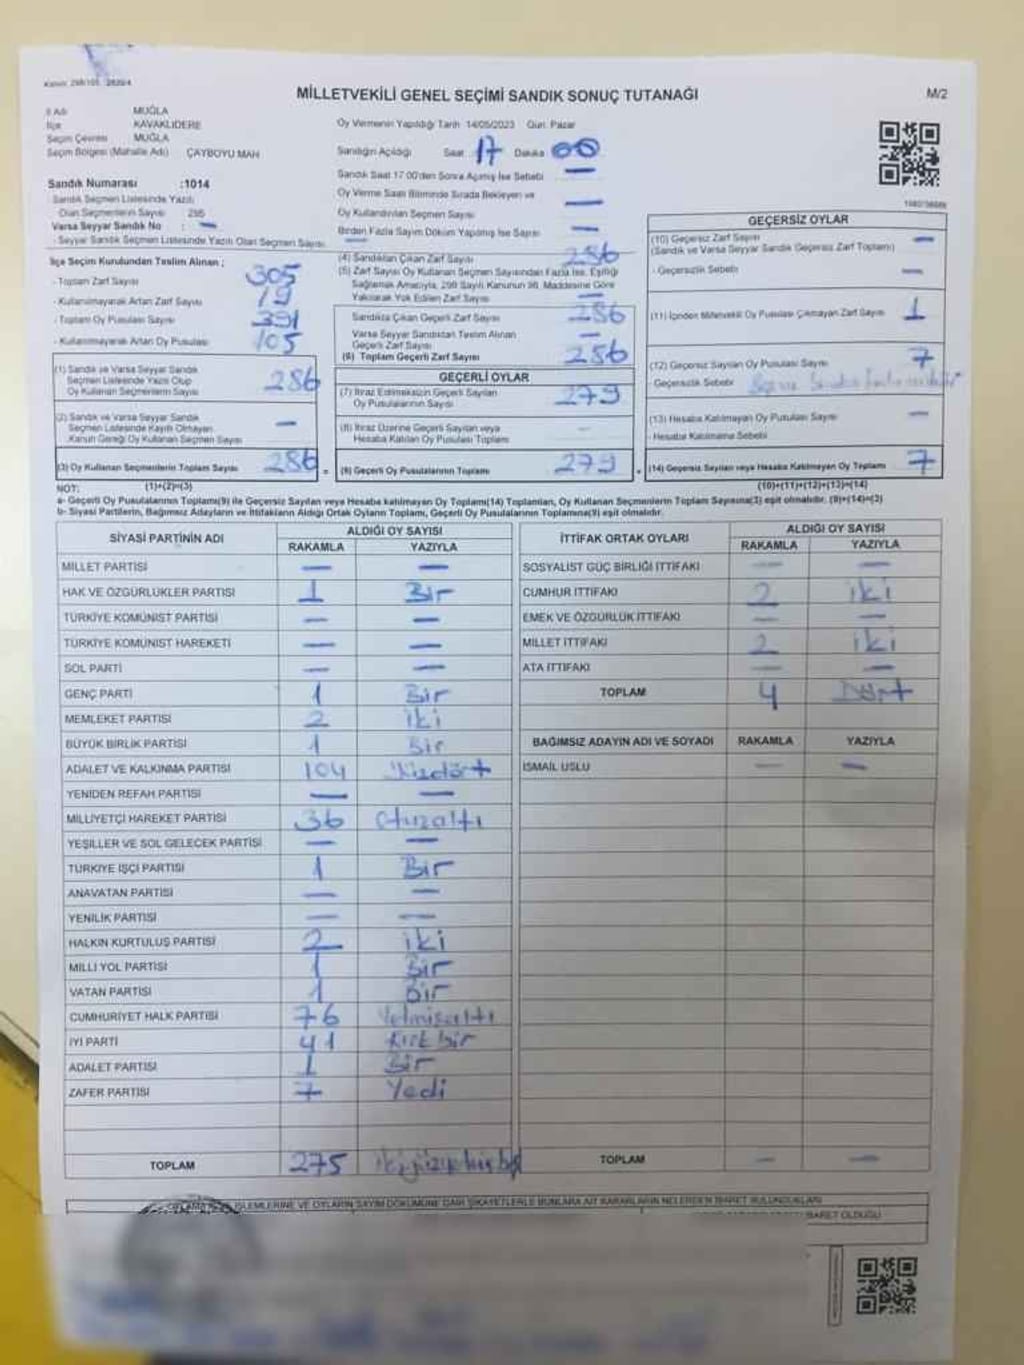 Kanun: 298/105, 2839/4
MİLLETVEKİLİ GENEL SEÇİMİ SANDIK SONUÇ TUTANAĞI
M/2
İl Adı MUĞLA
İlçe KAVAKLIDERE
Seçim Çevresi MUĞLA
Seçim Bölgesi (Mahalle Adı) ÇAYBOYU MAH
Oy Vermenin Yapıldığı Tarih 14/05/2023 Gün: Pazar
Sandığın Açıldığı Saat 17 Dakika 00
Sandık Saat 17.00'den Sonra Açılmış İse Sebebi —
Oy Verme Saati Bitiminde Sırada Bekleyen ve
Oy Kullandırılan Seçmen Sayısı —
Birden Fazla Sayım Döküm Yapılmış İse Sayısı —
Sandık Numarası :1014
Sandık Seçmen Listesinde Yazılı
Olan Seçmenlerin Sayısı : 295
Varsa Seyyar Sandık No : —
- Seyyar Sandık Seçmen Listesinde Yazılı Olan Seçmen Sayısı: —
İlçe Seçim Kurulundan Teslim Alınan ;
- Toplam Zarf Sayısı 305
- Kullanılmayarak Artan Zarf Sayısı 19
- Toplam Oy Pusulası Sayısı 391
- Kullanılmayarak Artan Oy Pusulası 105
(1) Sandık ve Varsa Seyyar Sandık
Seçmen Listesinde Yazılı Olup
Oy Kullanan Seçmenlerin Sayısı 286
(2) Sandık ve Varsa Seyyar Sandık
Seçmen Listesinde Kayıtlı Olmayan
Kanun Gereği Oy Kullanan Seçmen Sayısı —
(3) Oy Kullanan Seçmenlerin Toplam Sayısı 286 =
(4) Sandıktan Çıkan Zarf Sayısı 286
(5) Zarf Sayısı Oy Kullanan Seçmen Sayısından Fazla İse, Eşitliği
Sağlamak Amacıyla, 298 Sayılı Kanunun 98. Maddesine Göre
Yakılarak Yok Edilen Zarf Sayısı —
Sandıkta Çıkan Geçerli Zarf Sayısı 286
Varsa Seyyar Sandıktan Teslim Alınan
Geçerli Zarf Sayısı —
(6) Toplam Geçerli Zarf Sayısı 286
GEÇERLİ OYLAR
(7) İtiraz Edilmeksizin Geçerli Sayılan
Oy Pusulalarının Sayısı 279
(8) İtiraz Üzerine Geçerli Sayılan veya
Hesaba Katılan Oy Pusulası Toplamı —
(9) Geçerli Oy Pusulalarının Toplamı 279 +
GEÇERSİZ OYLAR
(10) Geçersiz Zarf Sayısı —
(Sandık ve Varsa Seyyar Sandık Geçersiz Zarf Toplamı)
- Geçersizlik Sebebi —
(11) İçinden Milletvekili Oy Pusulası Çıkmayan Zarf Sayısı 1
(12) Geçersiz Sayılan Oy Pusulası Sayısı 7
Geçersizlik Sebebi
(13) Hesaba Katılmayan Oy Pusulası Sayısı —
- Hesaba Katılmama Sebebi
(14) Geçersiz Sayılan veya Hesaba Katılmayan Oy Toplamı 7
NOT: (1)+(2)=(3) (10)+(11)+(12)+(13)=(14)
a- Geçerli Oy Pusulalarının Toplamı(9) ile Geçersiz Sayılan veya Hesaba katılmayan Oy Toplamı(14) Toplamları, Oy Kullanan Seçmenlerin Toplam Sayısına(3) eşit olmalıdır. (9)+(14)=(3)
b- Siyasi Partilerin, Bağımsız Adayların ve İttifakların Aldığı Ortak Oyların Toplamı, Geçerli Oy Pusulalarının Toplamına(9) eşit olmalıdır.
SİYASİ PARTİNİN ADI ALDIĞI OY SAYISI
RAKAMLA YAZIYLA
MİLLET PARTİSİ — —
HAK VE ÖZGÜRLÜKLER PARTİSİ 1 Bir
TÜRKİYE KOMÜNİST PARTİSİ — —
TÜRKİYE KOMÜNİST HAREKETİ — —
SOL PARTİ — —
GENÇ PARTİ 1 Bir
MEMLEKET PARTİSİ 2 iki
BÜYÜK BİRLİK PARTİSİ 1 Bir
ADALET VE KALKINMA PARTİSİ 104 Yüzdört
YENİDEN REFAH PARTİSİ — —
MİLLİYETÇİ HAREKET PARTİSİ 36 Otuzaltı
YEŞİLLER VE SOL GELECEK PARTİSİ — —
TÜRKİYE İŞÇİ PARTİSİ 1 Bir
ANAVATAN PARTİSİ — —
YENİLİK PARTİSİ — —
HALKIN KURTULUŞ PARTİSİ 2 iki
MİLLİ YOL PARTİSİ 1 Bir
VATAN PARTİSİ 1 Bir
CUMHURİYET HALK PARTİSİ 76 Yetmişaltı
İYİ PARTİ 41 Kırkbir
ADALET PARTİSİ 1 Bir
ZAFER PARTİSİ 7 Yedi
TOPLAM 275
İTTİFAK ORTAK OYLARI ALDIĞI OY SAYISI
RAKAMLA YAZIYLA
SOSYALİST GÜÇ BİRLİĞİ İTTİFAKI — —
CUMHUR İTTİFAKI 2 iki
EMEK VE ÖZGÜRLÜK İTTİFAKI — —
MİLLET İTTİFAKI 2 iki
ATA İTTİFAKI — —
TOPLAM 4 Dört
BAĞIMSIZ ADAYIN ADI VE SOYADI RAKAMLA YAZIYLA
İSMAİL USLU — —
TOPLAM — —
İŞLEMLERİNE VE OYLARIN SAYIM DÖKÜMÜNE DAİR ŞİKAYETLERLE BUNLARA AİT KARARLARIN NELERDEN İBARET BULUNDUKLARI
İBARET OLDUĞU